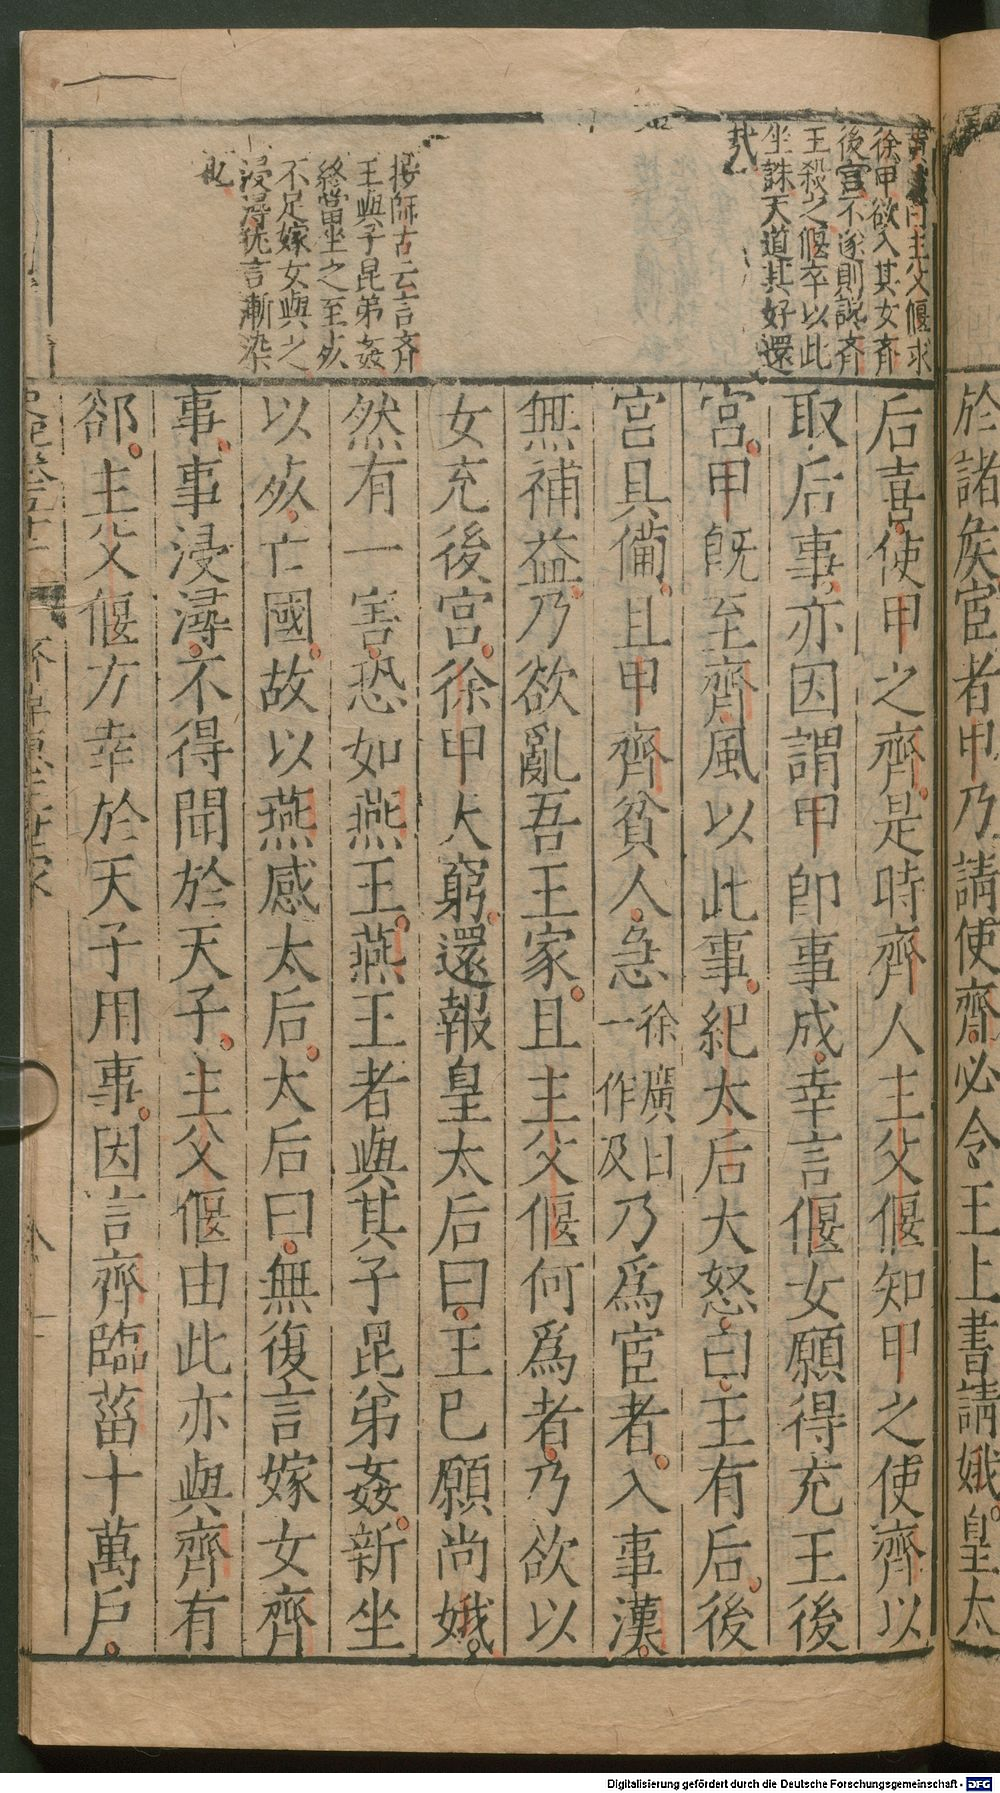 於諸矦宦者甲乃請使齊必令王上書請娥皇太
徐甲欲入其女齊
後宮不遂則説齊
王殺之偃卒以此
坐誅天道其好還
哉
按師古云言齊
王與子昆弟姦
終當坐之至𣦸
不足嫁女與之
浸潯犹言漸染
也
后喜使甲之齊是時齊人主父偃知甲之使齊以
取后事亦因謂甲卽事成幸言偃女願得充王後
宮甲旣至齊風以此事紀太后大怒曰王有后後
宮具備且甲齊貧人急徐廣曰一作及乃爲宦者入事漢
無補益乃欲亂吾王家且主父偃何爲者乃欲以
女充後宮徐甲大窮還報皇太后曰王已願尚娥
然有一害恐如燕王燕王者與其子昆弟姦新坐
以𣦸亡國故以燕感太后太后曰無復言嫁女齊
事事浸潯不得聞於天子主父偃由此亦與齊有
郤主父偃方幸於天子用事因言齊臨菑十萬戶
八
Digitalisierung gefördert durch die Deutsche Forschungsgemeinschaft - DFG